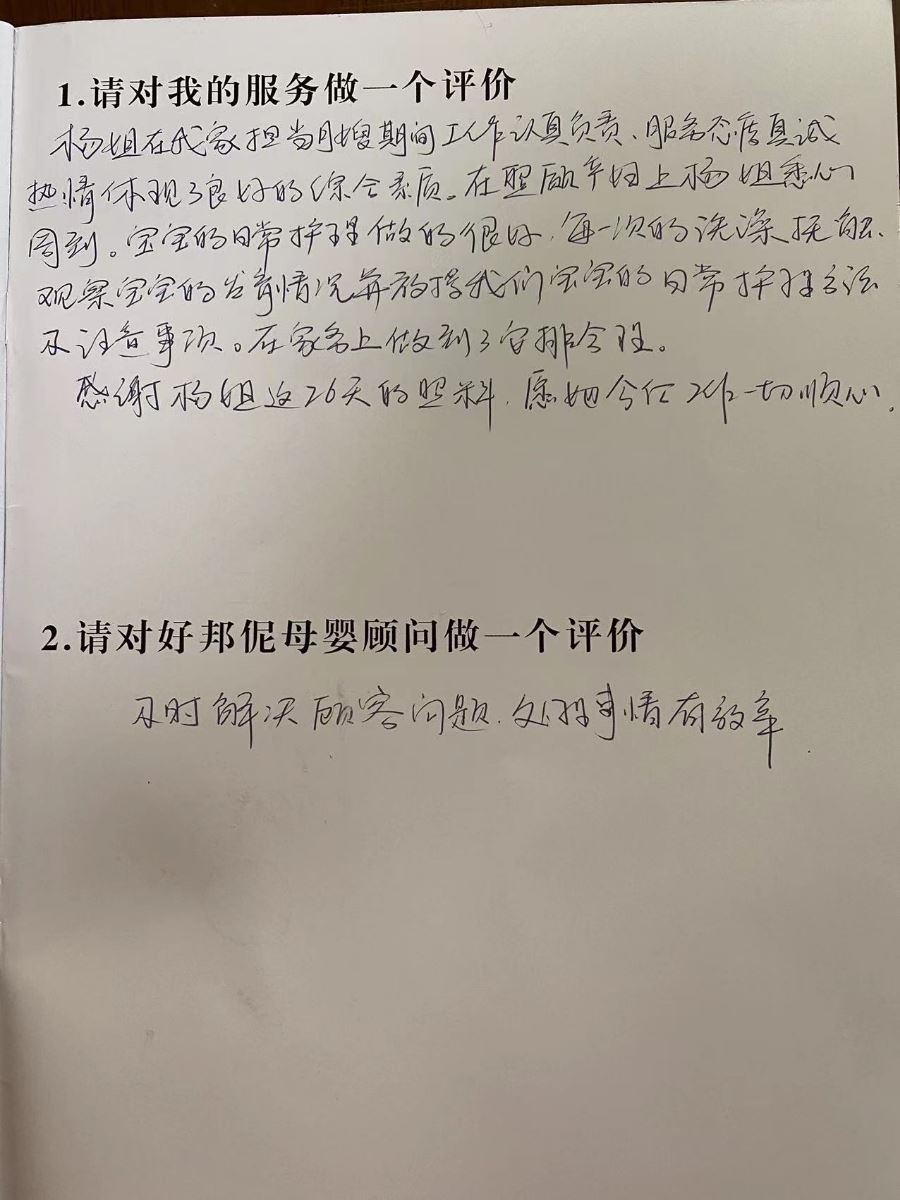 1.请对我的服务做一个评价
杨姐在我家担当月嫂期间工作认真负责、服务态度真诚
热情体现了良好的综合素质。在照顾孕妇上杨姐悉心
周到。宝宝的日常护理做的很好,每一次的洗澡抚触、
观察宝宝的发育情况并教授我们宝宝的日常护理方法
及注意事项。在家务上做到了安排合理。
感谢杨姐这26天的照料,愿她今后工作一切顺心.
2.请对好邦伲母婴顾问做一个评价
及时解决顾客问题.处理事情有效率.